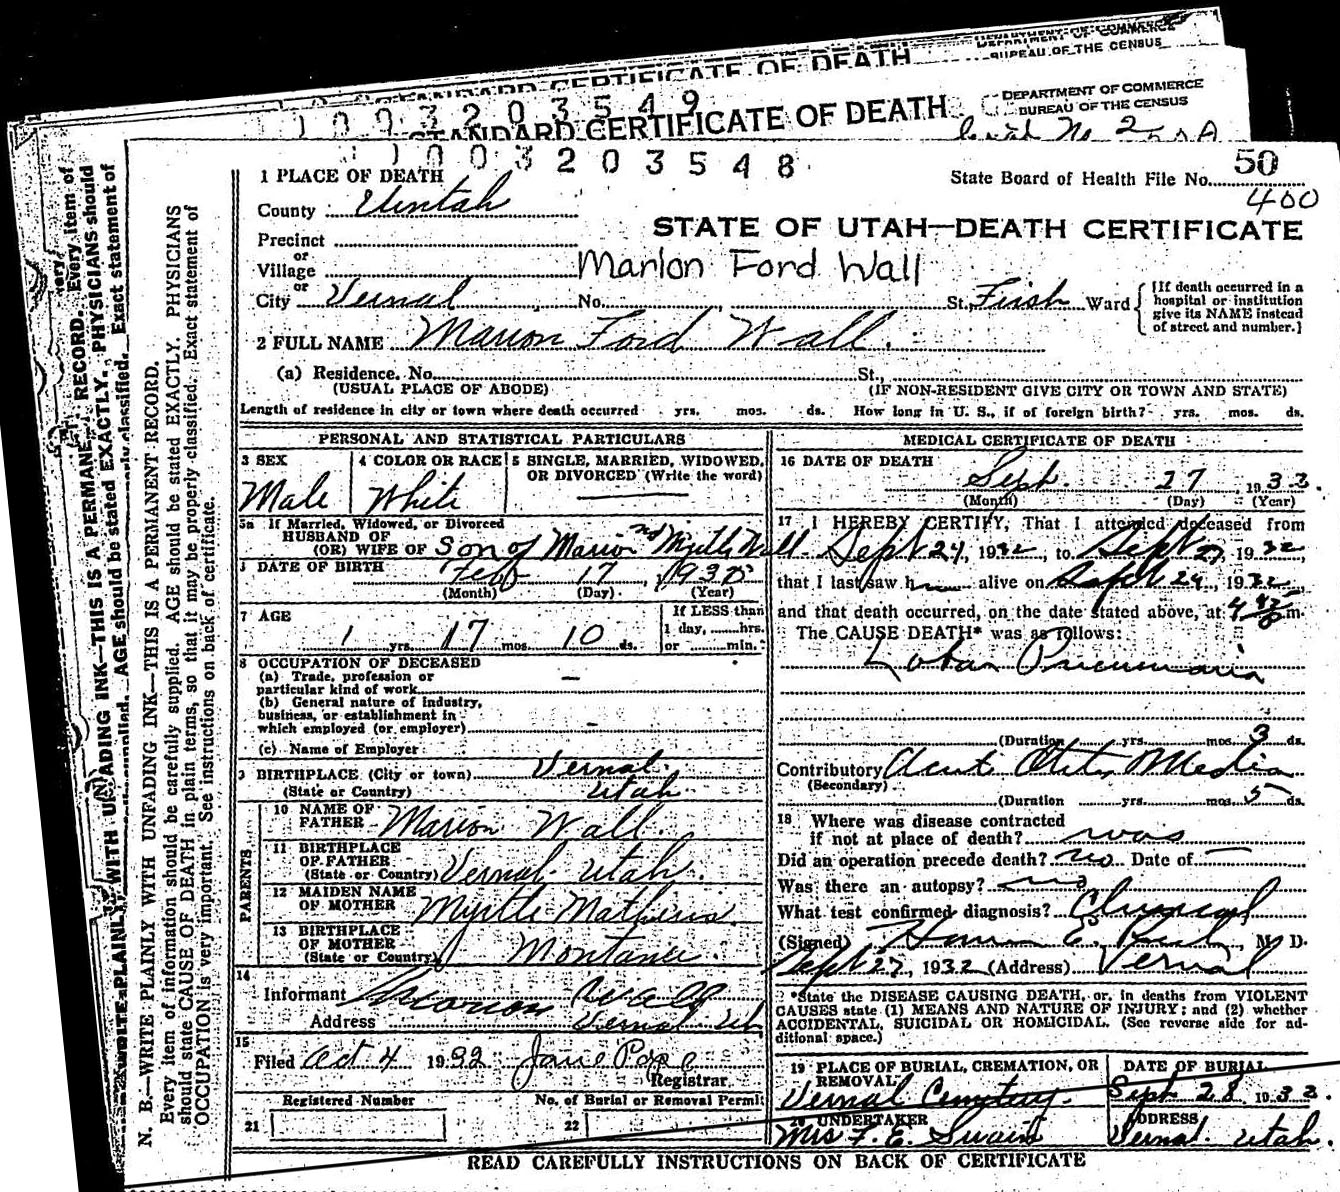 STANDARD CERTIFICATE OF DEATH
DEPARTMENT OF COMMERCE
BUREAU OF THE CENSUS
1003203549
STANDARD CERTIFICATE OF DEATH
DEPARTMENT OF COMMERCE
BUREAU OF THE CENSUS
Serial No. 2
1003203548
1 PLACE OF DEATH
State Board of Health File No. 50
400
County Uintah
STATE OF UTAH—DEATH CERTIFICATE
Precinct
or
Village
Marion Ford Wall
or
City Vernal No. St., First Ward
{If death occurred in a hospital or institution give its NAME instead of street and number.}
2 FULL NAME Marion Ford Wall.
(a) Residence. No. St.,
(USUAL PLACE OF ABODE) (IF NON-RESIDENT GIVE CITY OR TOWN AND STATE)
Length of residence in city or town where death occurred yrs. mos. ds. How long in U. S., if of foreign birth? yrs. mos. ds.
PERSONAL AND STATISTICAL PARTICULARS
3 SEX Male
4 COLOR OR RACE White
5 SINGLE, MARRIED, WIDOWED, OR DIVORCED (Write the word)
5a If Married, Widowed, or Divorced
HUSBAND OF
(OR) WIFE OF Son of Marion and Myrtle Wall
DATE OF BIRTH Feb 17, 193
(Month) (Day) (Year)
7 AGE
1 yrs. 17 mos. 10 ds.
If LESS than
1 day, hrs.
or min.
8 OCCUPATION OF DECEASED
(a) Trade, profession or
particular kind of work —
(b) General nature of industry,
business, or establishment in
which employed (or employer) —
(c) Name of Employer
9 BIRTHPLACE (City or town) Vernal.
(State or Country) Utah
PARENTS
10 NAME OF
FATHER Marion Wall.
11 BIRTHPLACE
OF FATHER
(State or Country) Vernal Utah.
12 MAIDEN NAME
OF MOTHER Myrtle
13 BIRTHPLACE
OF MOTHER
(State or Country) Montana.
14
Informant Marion Wall
Address Vernal Ut
15
Filed Oct 4 1932 Jane Pope
Registrar
Registered Number No. of Burial or Removal Permit
21 22
MEDICAL CERTIFICATE OF DEATH
16 DATE OF DEATH
Sept. 27, 193
(Month) (Day) (Year)
17 I HEREBY CERTIFY, That I attended deceased from
Sept 24, 1932, to Sept 27, 1932
that I last saw h alive on Sept 24, 1932,
and that death occurred, on the date stated above, at 4 45 m.
The CAUSE DEATH* was as follows:
Lobar Pneumonia
(Duration yrs. mos. 3 ds.
Contributory Acute Otitis Media
(Secondary)
(Duration yrs. mos. 5 ds.
18 Where was disease contracted
if not at place of death? was
Did an operation precede death? no. Date of —
Was there an autopsy? no
What test confirmed diagnosis? Clinical
(Signed) M D.
Sept 27, 1932 (Address) Vernal
*State the DISEASE CAUSING DEATH, or, in deaths from VIOLENT
CAUSES state (1) MEANS AND NATURE OF INJURY; and (2) whether
ACCIDENTAL, SUICIDAL OR HOMICIDAL. (See reverse side for ad-
ditional space.)
19 PLACE OF BURIAL, CREMATION, OR
REMOVAL
Vernal Cemetery.
DATE OF BURIAL
Sept 28, 193
20 UNDERTAKER
Mrs F. E. Swain
ADDRESS
Vernal. Utah.
READ CAREFULLY INSTRUCTIONS ON BACK OF CERTIFICATE
N. B.—WRITE PLAINLY WITH UNFADING INK—THIS IS A PERMANENT RECORD.
Every item of information should be carefully supplied. AGE should be stated EXACTLY. PHYSICIANS
should state CAUSE OF DEATH in plain terms, so that it may be properly classified. Exact statement of
OCCUPATION is very important. See instructions on back of certificate.